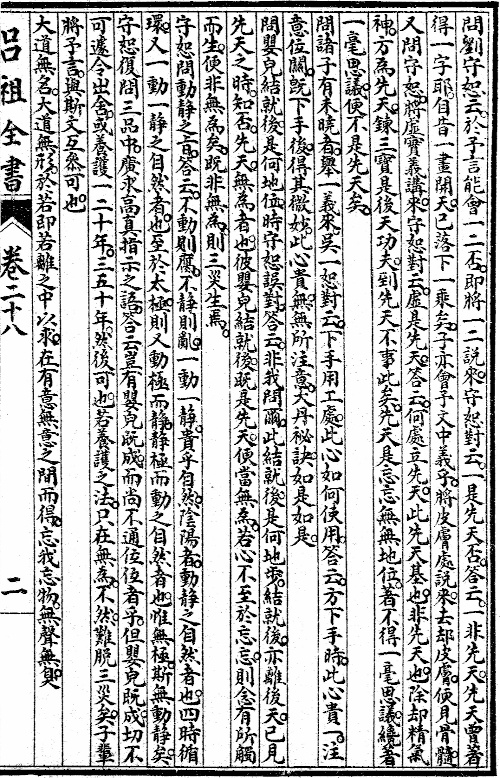 問劉守恕云於予言能會一二否即將一二說來守恕對云一是先天否答云一非先天先天曾著
得一字耶自昔一畫開天已落下一乘矣子亦會予文中義乎將皮膚處說來去却皮膚便見骨髓
又問守恕將虛實義講來守恕對云虛是先天答云何處立先天此先天基也非先天也除却精氣
神方為先天鍊三寶是後天功夫到先天不事此矣先天是忘忘無無地位著不得一毫思議纔著
一毫思議便不是先天矣
問諸子有未曉者舉一義來吳一恕對云下手用工處此心如何使用答云方下手時此心貴一注
意位關既下手後得其微妙此心貴無無所注意大丹秘訣如是如是
問嬰兒結就後是何地位時守恕誤對答云非我問爾此結就後是何地步結就後亦離後天已見
先天之時知否先天無為者也彼嬰兒結就後既是先天便當無為若心不至於忘忘則念有所觸
而生便非無為矣既非無為則三災生焉
守恕問動靜之旨答云不動則腐不靜則亂一動一靜貴乎自然陰陽者動靜之自然者也四時循
環又一動一靜之自然者也至於太極則又動極而靜靜極而動之自然者也惟無極斯無動靜矣
守恕復問三品中廣求高真指示之語答云豈有嬰兒既成而尚不通位位者乎但嬰兒既成切不
可遽令出舍或養護一二十年三五十年然後可也若養護之法只在無為不然難脫三災矣子輩
將予言與斯文互參可也
大道無名大道無形於若即若離之中以求在有意無意之間而得忘我忘物無聲無臭
呂祖全書
卷二十八
二